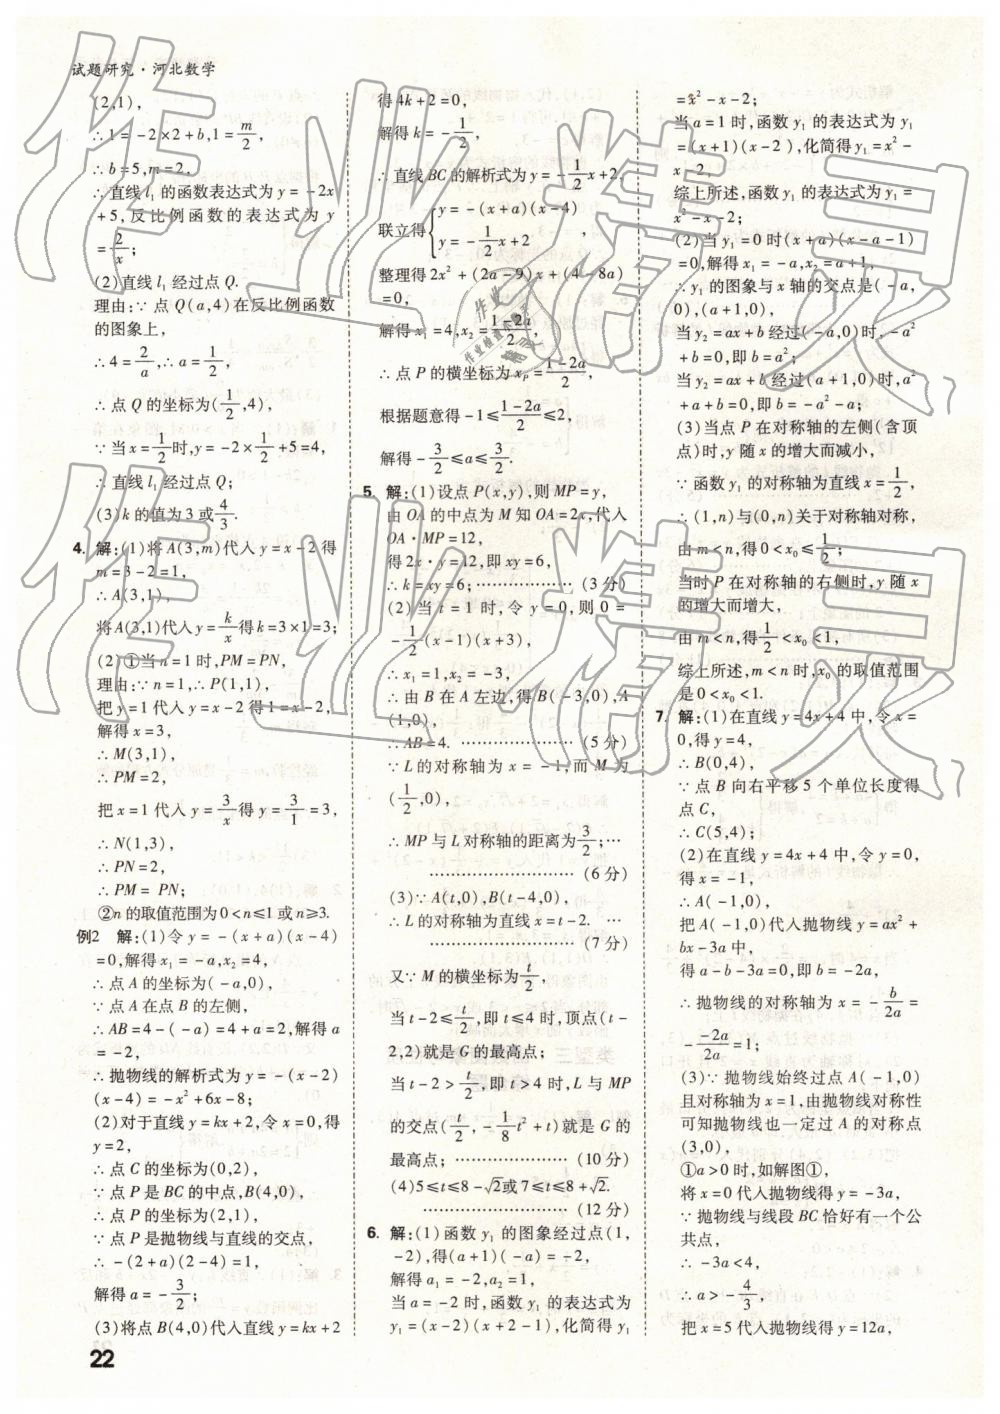 试题研究·河北数学
(2,1),
∴1=-2×2+b,1=m/2,
∴b=5,m=2.
∴直线l₁的函数表达式为y=-2x
+5,反比例函数的表达式为y
=2/x;
(2)直线l₁经过点Q.
理由:∵点Q(a,4)在反比例函数
的图象上,
∴4=2/a,∴a=1/2,
∴点Q的坐标为(1/2,4),
∵当x=1/2时,y=-2×1/2+5=4,
∴直线l₁经过点Q;
(3)k的值为3或4/3.
4. 解:(1)将A(3,m)代入y=x-2得
m=3-2=1,
∴A(3,1),
将A(3,1)代入y=k/x得k=3×1=3;
(2)①当n=1时,PM=PN,
理由:∵n=1,∴P(1,1),
把y=1代入y=x-2得1=x-2,
解得x=3,
∴M(3,1),
∴PM=2,
把x=1代入y=3/x得y=3/1=3,
∴N(1,3),
∴PN=2,
∴PM=PN;
②n的取值范围为0<n≤1或n≥3.
例2 解:(1)令y=-(x+a)(x-4)
=0,解得x₁=-a,x₂=4,
∴点A的坐标为(-a,0),
∵点A在点B的左侧,
∴AB=4-(-a)=4+a=2,解得a
=-2,
∴抛物线的解析式为y=-(x-2)
(x-4)=-x²+6x-8;
(2)对于直线y=kx+2,令x=0,得
y=2,
∴点C的坐标为(0,2),
∵点P是BC的中点,B(4,0),
∴点P的坐标为(2,1),
∵点P是抛物线与直线的交点,
∴-(2+a)(2-4)=1,
解得a=-3/2;
(3)将点B(4,0)代入直线y=kx+2
得4k+2=0,
解得k=-1/2,
∴直线BC的解析式为y=-1/2x+2,
联立得{y=-(x+a)(x-4)
y=-1/2x+2,
整理得2x²+(2a-9)x+(4-8a)
=0,
解得x₁=4,x₂=(1-2a)/2,
∴点P的横坐标为xP=(1-2a)/2,
根据题意得-1≤(1-2a)/2≤2,
解得-3/2≤a≤3/2.
5. 解:(1)设点P(x,y),则MP=y,
由OA的中点为M知OA=2x,代入
OA·MP=12,
得2x·y=12,即xy=6;
∴k=xy=6;……………(3分)
(2)当t=1时,令y=0,则0=
-1/2(x-1)(x+3),
∴x₁=1,x₂=-3,
∴由B在A左边,得B(-3,0),A
(1,0),
∴AB=4.……………(5分)
∵L的对称轴为x=-1,而M为
(1/2,0),
∴MP与L对称轴的距离为3/2;
……………(6分)
(3)∵A(t,0),B(t-4,0),
∴L的对称轴为直线x=t-2.
……………(7分)
又∵M的横坐标为t/2,
当t-2≤t/2,即t≤4时,顶点(t-
2,2)就是G的最高点;
当t-2>t/2,即t>4时,L与MP
的交点(t/2,-1/8t²+t)就是G的
最高点;……………(10分)
(4)5≤t≤8-√2或7≤t≤8+√2.
……………(12分)
6. 解:(1)函数y₁的图象经过点(1,
-2),得(a+1)(-a)=-2,
解得a₁=-2,a₂=1,
当a=-2时,函数y₁的表达式为
y₁=(x-2)(x+2-1),化简得y₁
=x²-x-2;
当a=1时,函数y₁的表达式为y₁
=(x+1)(x-2),化简得y₁=x²-
x-2,
综上所述,函数y₁的表达式为y₁=
x²-x-2;
(2)当y₁=0时(x+a)(x-a-1)
=0,解得x₁=-a,x₂=a+1,
∴y₁的图象与x轴的交点是(-a,
0),(a+1,0),
当y₂=ax+b经过(-a,0)时,-a²
+b=0,即b=a²;
当y₂=ax+b经过(a+1,0)时,a²
+a+b=0,即b=-a²-a;
(3)当点P在对称轴的左侧(含顶
点)时,y随x的增大而减小,
∵函数y₁的对称轴为直线x=1/2,
∴(1,n)与(0,n)关于对称轴对称,
由m<n,得0<x₀≤1/2;
当时P在对称轴的右侧时,y随x
的增大而增大,
由m<n,得1/2<x₀<1,
综上所述,m<n时,x₀的取值范围
是0<x₀<1.
7. 解:(1)在直线y=4x+4中,令x=
0,得y=4,
∴B(0,4),
∵点B向右平移5个单位长度得
点C,
∴C(5,4);
(2)在直线y=4x+4中,令y=0,
∴A(-1,0),
把A(-1,0)代入抛物线y=ax²+
bx-3a中,
得a-b-3a=0,即b=-2a,
∴抛物线的对称轴为x=-b/2a=
--2a/2a=1;
(3)∵抛物线始终过点A(-1,0)
且对称轴为x=1,由抛物线对称性
可知抛物线也一定过A的对称点
(3,0),
①a>0时,如解图①,
将x=0代入抛物线得y=-3a,
∵抛物线与线段BC恰好有一个公
共点,
∴-3a<4,
∴a>-4/3,
把x=5代入抛物线得y=12a,
22
作业精灵
作业精灵